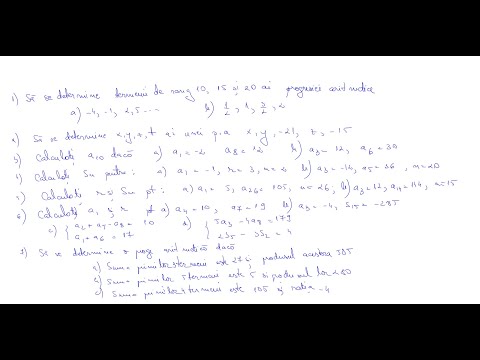 1) Să se determine termenii de rang 10, 15 și 20 ai progresiei aritmetice
a) -4, -1, 2, 5 ... b) 1/2, 1, 3/2, 2
2) Să se determine x, y, z, t ai unei p.a x, y, -21, z, -15
3) Calculați a10 dacă a) a1 = -2 a8 = 12 b) a3 = 12, a6 = 30
4) Calculați Sn pentru: a) a1 = -1, r = 3, n = b) a3 = -14, a5 = 36, n = 20
5) Calculați r și Sn pt: a) a1 = 5, a26 = 105, n = 26, b) a3 = 12, n = 15
6) Calculați a1 și r a) a4 = 10, a7 = 19 b) a3 = -4, = -285
c) { a2 + a5 - a8 = 10 d) { 3a3 - 4a8 = 179
a1 + a6 = 17 2S5 - 3S2 = 4
7) Să se determine o progr. aritmetică dacă
a) Suma primilor 3 termeni este 27 și produsul acestora
b) Suma primilor termeni este 5 și produsul lor
c) Suma primilor termeni este 105 și rația -4